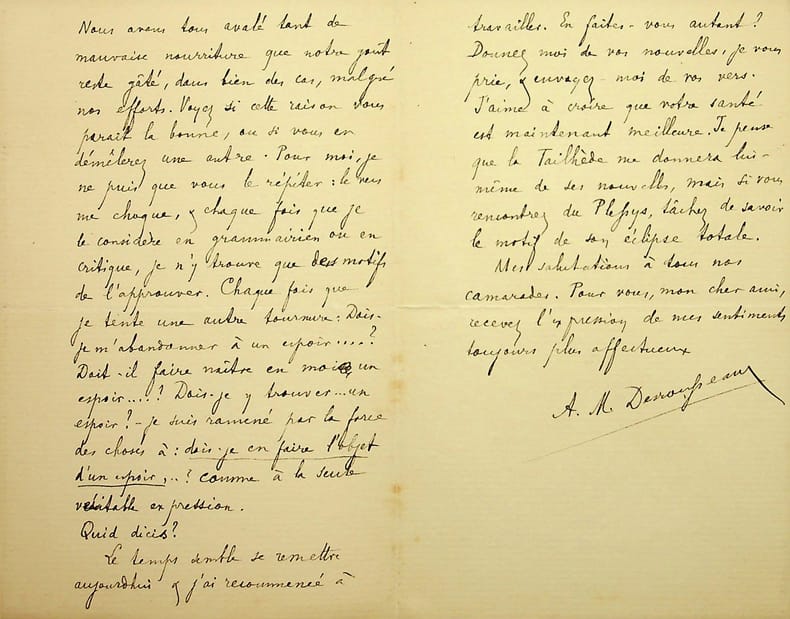 Nous avons tous avalé tant de
mauvaise nourriture que notre goût
reste gâté, dans bien des cas, malgré
nos efforts. Voyez si cette raison vous
paraît la bonne, ou si vous en
démêlerez une autre. Pour moi, je
ne puis que vous le répéter : le vers
me choque, & chaque fois que je
le considère en grammairien ou en
critique, je n'y trouve que des motifs
de l'approuver. Chaque fois que
je tente une autre tournure : Dois-
je m'abandonner à un espoir.....?
Doit-il faire naître en moi un
espoir.....? Dois-je y trouver...un
espoir? - je suis ramené par la force
des choses à : dois-je en faire l'objet
d'un espoir,..? comme à la seule
véritable expression.
Quid dicis?
Le temps semble se remettre
aujourdhui & j'ai recommencé à
travailler. En faites-vous autant?
Donnez moi de vos nouvelles, je vous
prie, & envoyez-moi de vos vers.
J'aime à croire que votre santé
est maintenant meilleure. Je pense
que la Tailhède me donnera lui-
même de ses nouvelles, mais si vous
rencontrez du Plessys, tâchez de savoir
le motif de son éclipse totale.
Mes salutations à tous nos
camarades. Pour vous, mon cher ami,
recevez l'expression de mes sentiments
toujours plus affectueux
A. M. Desrousseaux